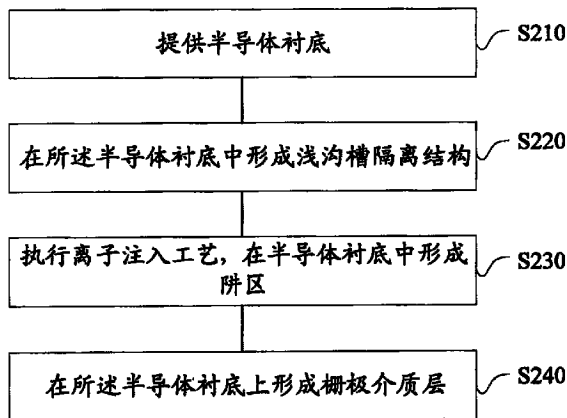 提供半导体衬底
S210
在所述半导体衬底中形成浅沟槽隔离结构
S220
执行离子注入工艺，在半导体衬底中形成
阱区
S230
在所述半导体衬底上形成栅极介质层
S240